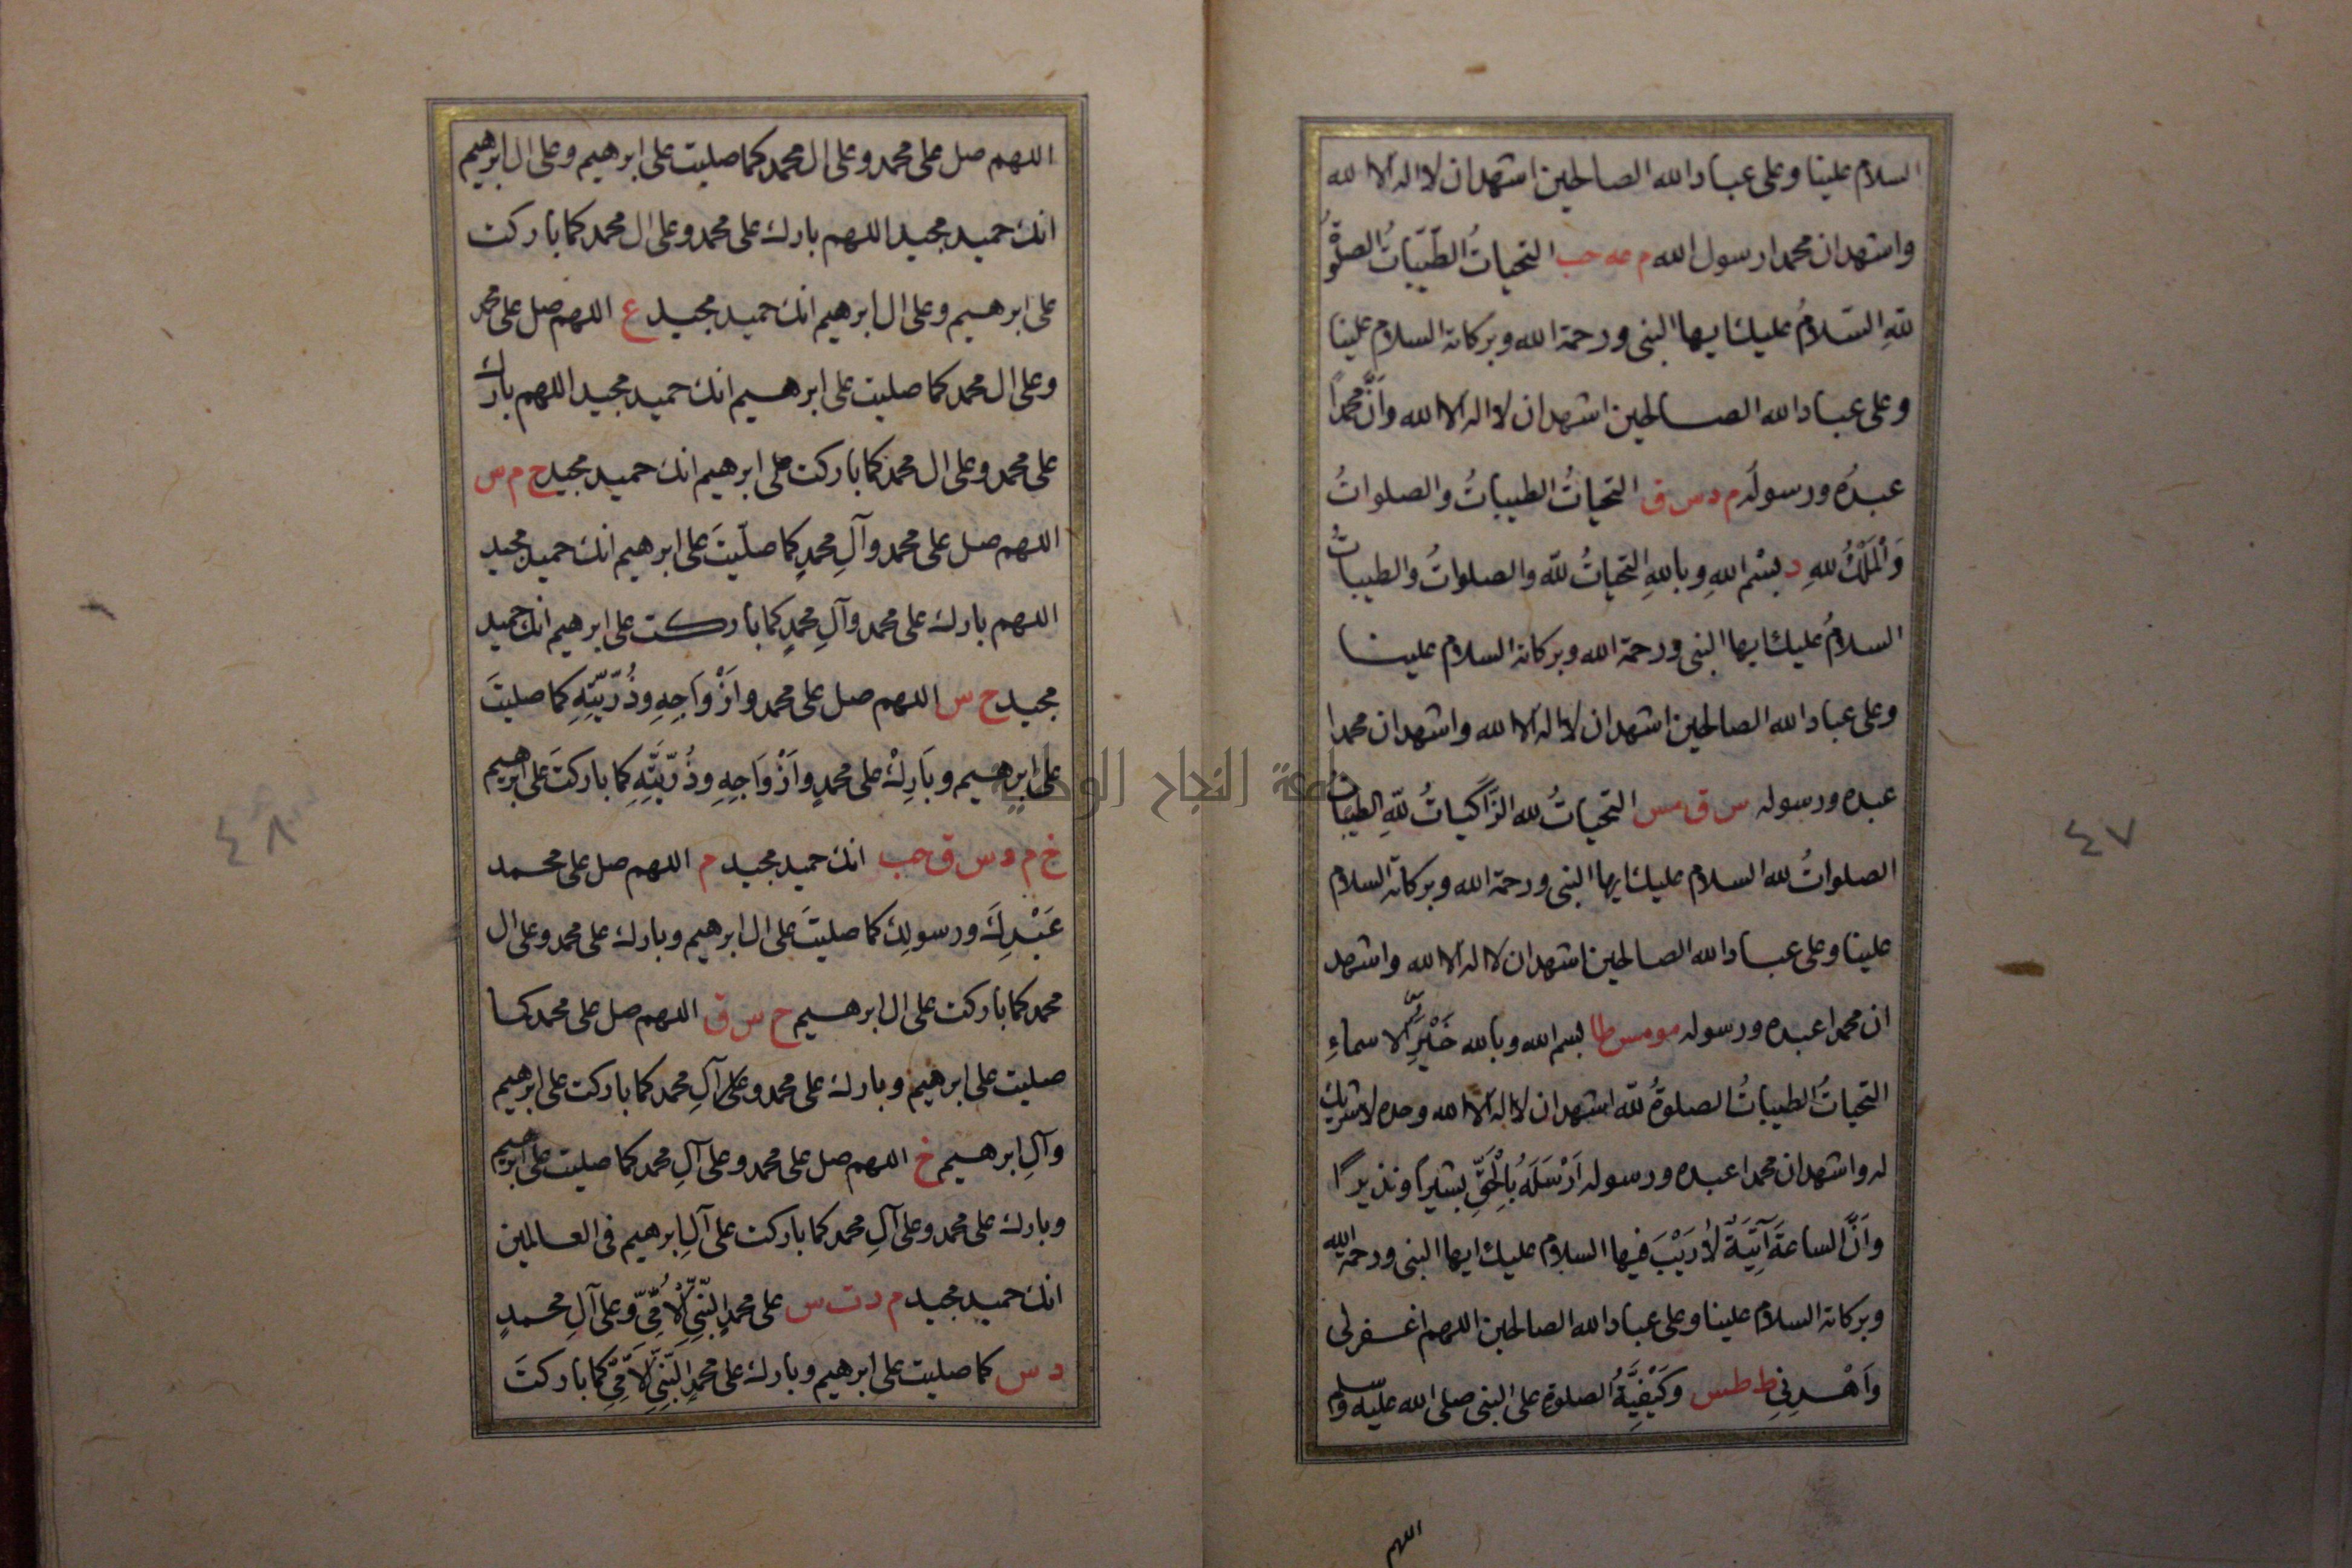 السلام علينا وعلى عباد الله الصالحين اشهد ان لا اله الا الله
واشهد ان محمدا رسول الله م عه حب التحياتُ الطَّيِّبَاتُ الصلوةُ
للهِ السّلامُ عليك ايها النبى ورحمة الله وبركاته السلام علينا
وعلى عباد الله الصالحين اشهد ان لا اله الا الله وَاَنَّ محمدًا
عبدُه ورسولُه م د س ق التحياتُ الطيباتُ والصلواتُ
وَالْمُلْكُ للهِ د بِسْمِ اللهِ وباللهِ التحياتُ لله والصلواتُ والطيباتُ
السلامُ عليك ايها النبى ورحمة الله وبركاته السلام علينا
وعلى عباد الله الصالحين اشهد ان لا اله الا الله واشهد ان محمدا
عبده ورسوله س ق مس التحياتُ لله الزَّاكياتُ للهِ الطيباتُ
الصلواتُ لله السلام عليك ايها النبى ورحمة الله وبركاته السلام
علينا وعلى عباد الله الصالحين اشهد ان لا اله الا الله واشهد
ان محمدا عبده ورسوله مو مس طا بسم الله وبالله خَيْرِ الاسماءِ
التحياتُ الطيباتُ الصلوةُ لله اشهد ان لا اله الا الله وحده لا شريك
له واشهد ان محمدا عبده ورسوله اَرْسَلَهُ بِالْحَقِّ بشيرًا ونذيرًا
وَاَنَّ الساعةَ آتِيَةٌ لَا رَيْبَ فيها السلام عليك ايها النبى ورحمة الله
وبركاته السلام علينا وعلى عباد الله الصالحين اللهم اغفرلى
وَاَهْدِنِى ط طس وَكَيْفِيَّةُ الصلوة على النبى صلى الله عليه وسلم
اللهم
٤٧
اللهم صل على محمد وعلى ال محمد كما صليت على ابرهيم وعلى ال ابرهيم
انك حميد مجيد اللهم بارك على محمد وعلى ال محمد كما باركت
على ابرهيم وعلى ال ابرهيم انك حميد مجيد ع اللهم صل على محمد
وعلى ال محمد كما صليت على ابرهيم انك حميد مجيد اللهم بارك
على محمد وعلى ال محمد كما باركت على ابرهيم انك حميد مجيد خ م س
اللهم صل على محمد وآلِ محمدٍ كما صلّيتَ على ابرهيم انك حميد مجيد
اللهم بارك على محمد وآلِ محمدٍ كما باركت على ابرهيم انك حميد
مجيد خ س اللهم صل على محمد وَاَزْوَاجِهِ وَذُرِّيَّتِهِ كما صليتَ
على ابرهيم وبَارِكْ على محمدٍ وَاَزْوَاجِهِ وَذُرِّيَّتِهِ كما باركتَ على ابرهيم
خ م د س ق حب انك حميد مجيد م اللهم صل على محمد
عَبْدِكَ ورسولِك كما صليتَ على ال ابرهيم وبارك على محمد وعلى ال
محمد كما باركت على ال ابرهيم خ س ق اللهم صل على محمد كما
صليت على ابرهيم وبارك على محمد وعلى آلِ محمد كما باركت على ابرهيم
وآلِ ابرهيم خ اللهم صل على محمد وعلى آلِ محمد كما صليت على ابرهيم
وبارك على محمد وعلى آلِ محمد كما باركت على آلِ ابرهيم فى العالمين
انك حميد مجيد م د ت س على محمدٍ النَّبِىِّ الْاُمِّىِّ وعلى آلِ محمدٍ
د س كما صليت على ابرهيم وبارك على محمدٍ النَّبِىِّ الْاُمِّىِّ كما باركتَ
٤٨
جامعة النجاح الوطنية